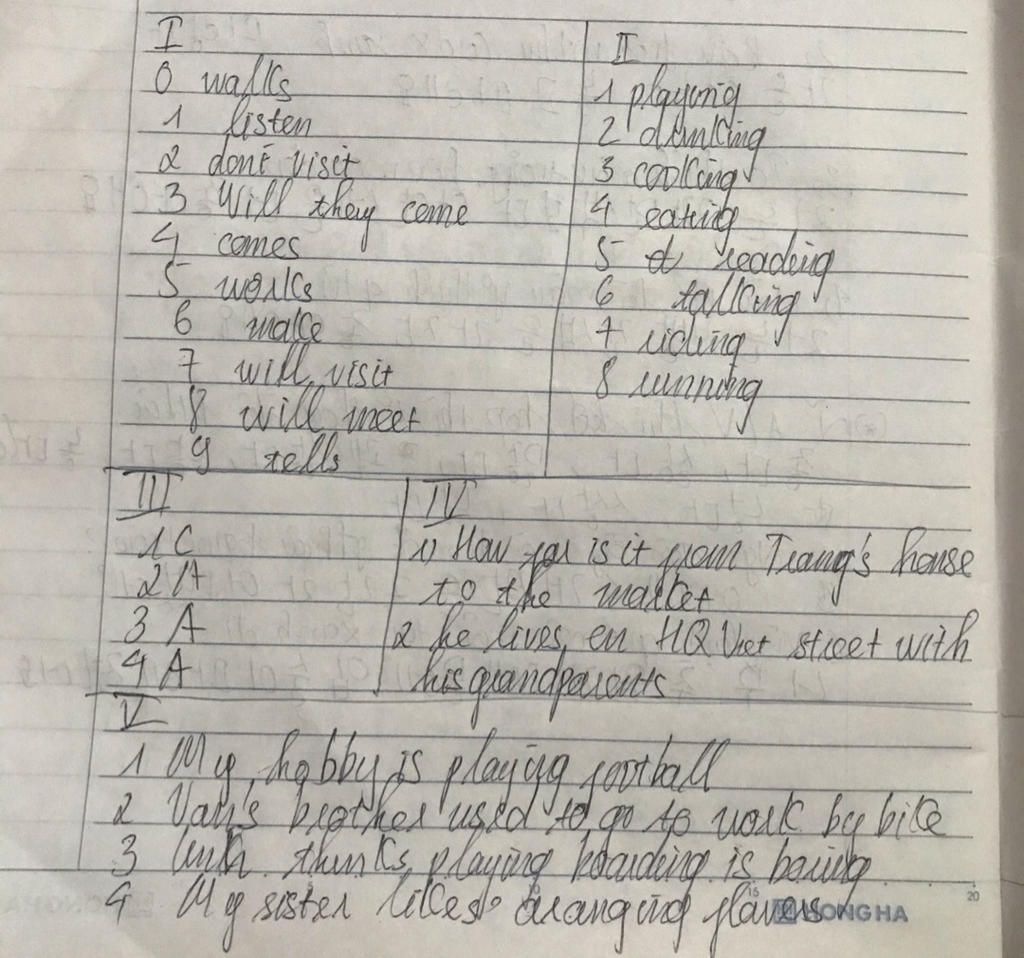 I
0 walks
1 listen
2 don't visit
3 Will they come
4 comes
5 works
6 make
7 will visit
8 will meet
9 tells
II
1 playing
2 drinking
3 cooking
4 eating
5 reading
6 talking
7 riding
8 running
III
1 C
2 A
3 A
4 A
IV
1) How far is it from Trang's house
to the market
2 he lives on HQ Viet street with
his grandparents
V
1 My hobby is playing football
2 Van's brother used to go to work by bike
3 Linh thinks playing boarding is boring
4 My sister likes aranging flavers
HONG HA
20